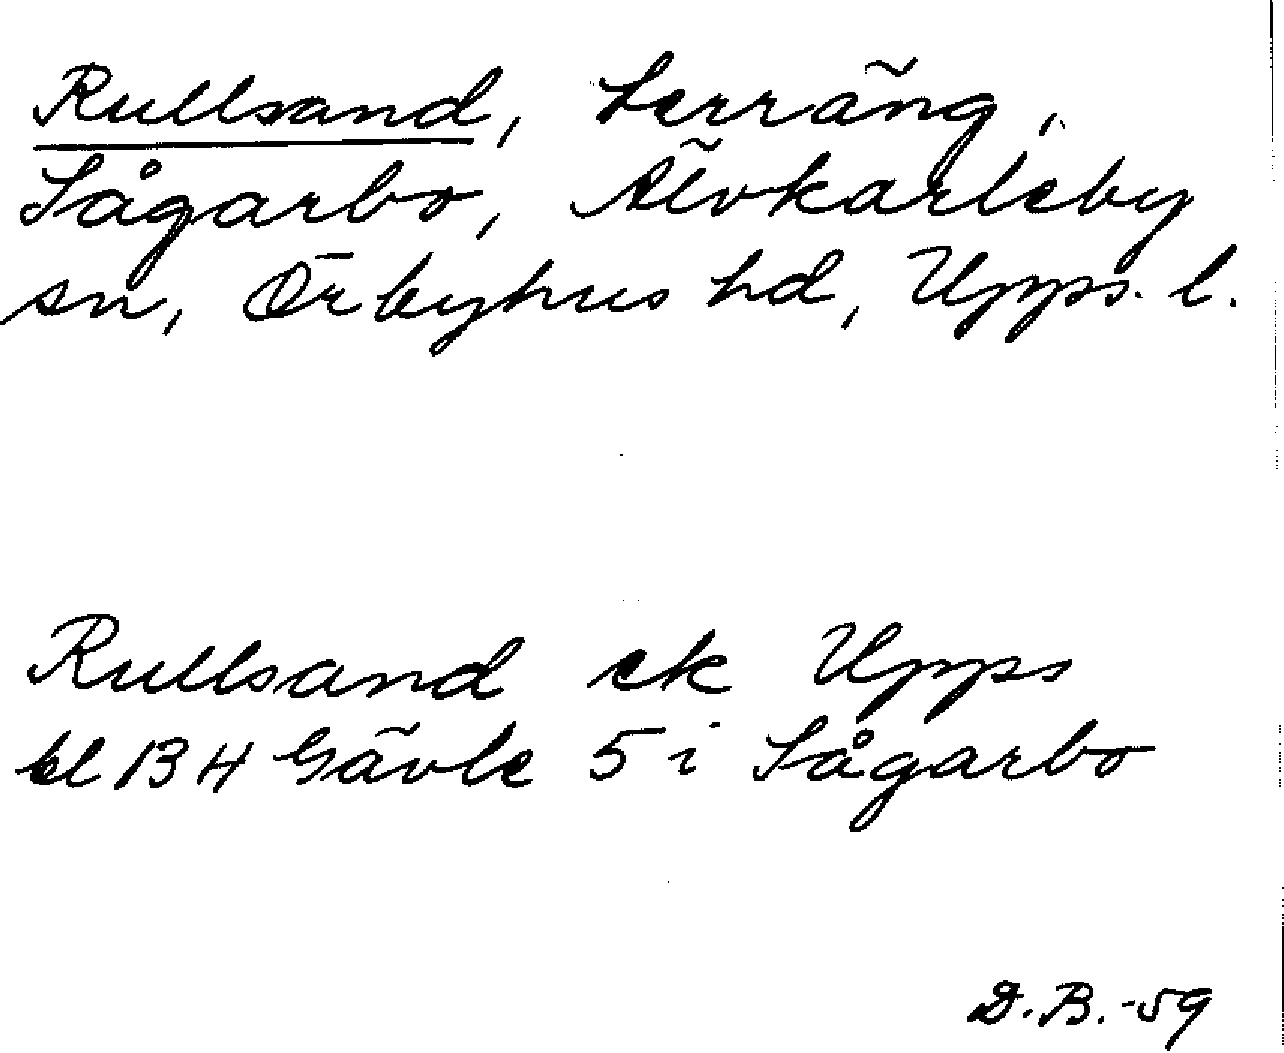 Rullsand, terräng,
Sågarbo, Älvkarleby
sn, Örbyhus hd, Upps. l.
Rullsand ek Upps
bl 13 H Gävle 5 i Sågarbo
D.B. -59